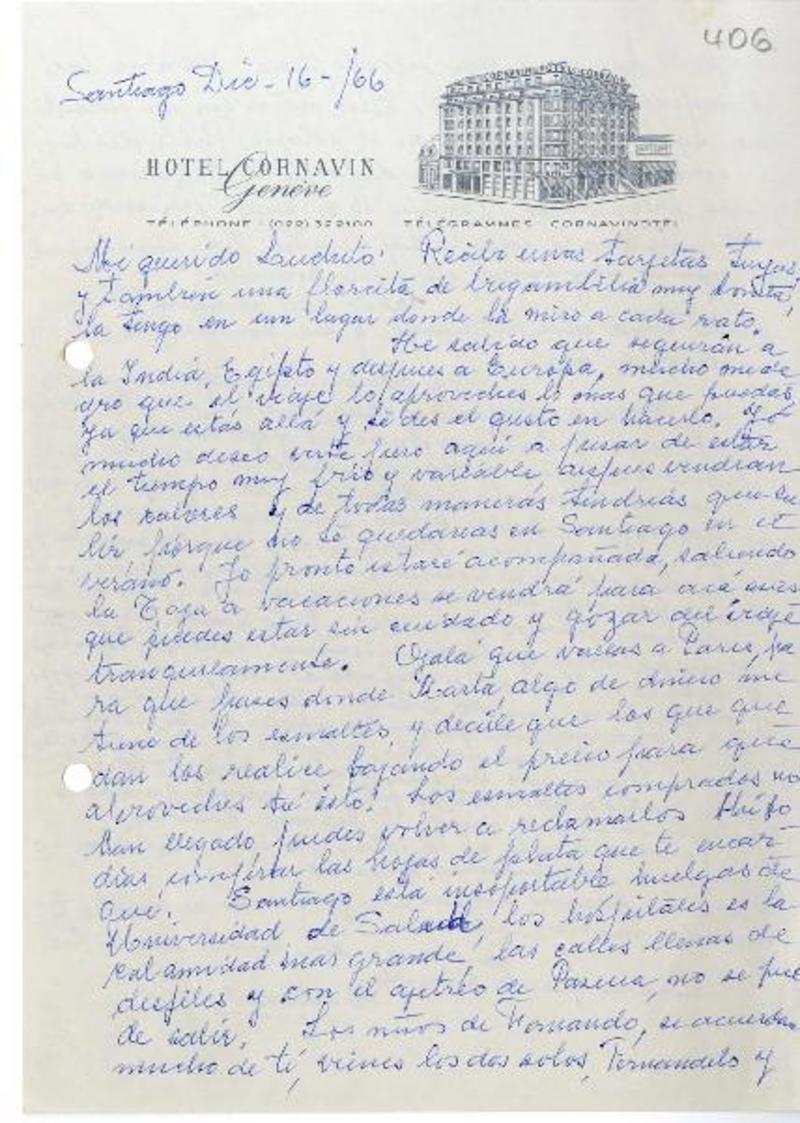 406
Santiago Dic - 16 - /66
HOTEL CORNAVIN
Genève
TÉLÉPHONE (022) 322100 TÉLÉGRAMMES CORNAVINOTEL
Mi querido Recibí unas tarjetas tuyas
y también una florcita de brigambilia muy bonita,
la tengo en un lugar donde la miro a cada rato.
He sabido que seguirán a
la India, Egipto y despues a Europa, mucho me ale
gro que el viaje lo aproveches lo mas que puedas,
ya que estás allá y te des el gusto en hacerlo. Yo
mucho deseo verte pero aquí a pesar de estar
el tiempo muy frio y variable despues vendrán
los calores y de todas maneras tendrías que sa
lir porque no te quedarias en Santiago en el
verano. Yo pronto estaré acompañada, saliendo
la a vacaciones se vendrá para acá asi es
que puedes estar sin cuidado y gozar del viaje
tranquilamente. Ojalá que vallas a Paris, pa
ra que pases donde Marta, algo de dinero me
tiene de los esmaltes, y decirle que los que que
dan los realice bajando el precio para que
aproveches tú ésto. Los esmaltes comprados no
han llegado, puedes volver a reclamarlos
días comprar las hojas de plata que te encar
gué. Santiago está insoportable huelgas de
Universidad de Salud, los hospitales es la
calamidad mas grande, las calles llenas de
desfiles y con el ajetreo de Pascua, no se pue
de salir. Los niños de Fernando, se acuerdan
mucho de tí, vienes los dos solos, Fernandito y